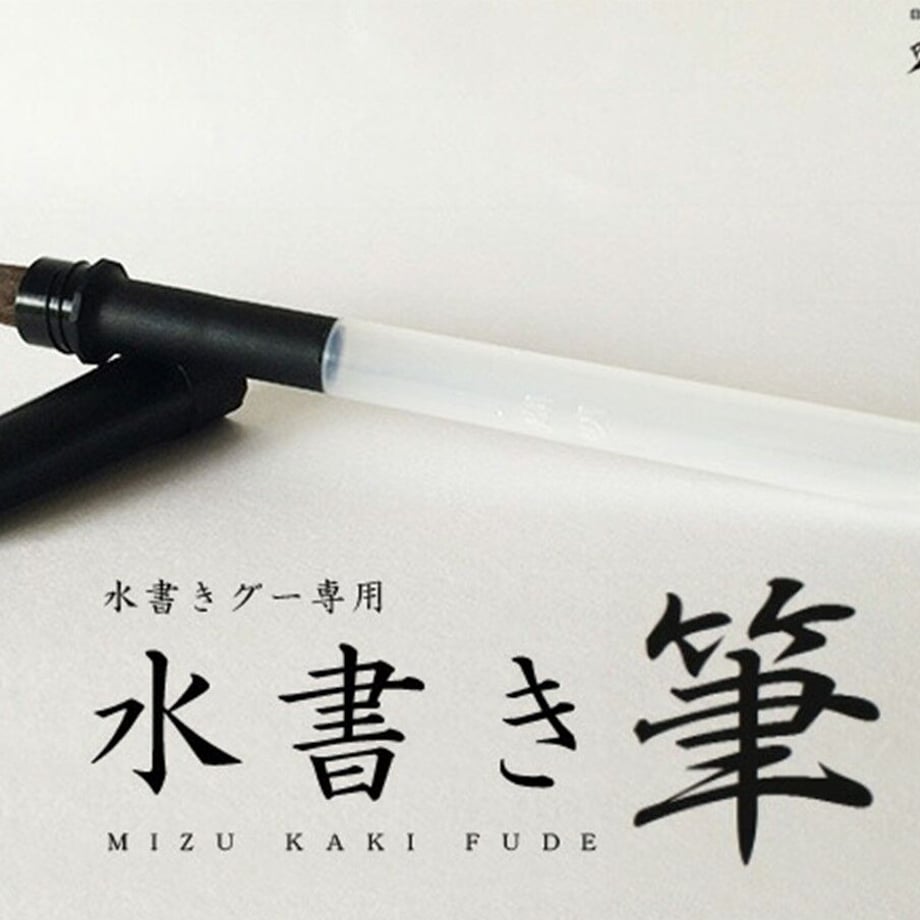 水書きグー専用
水書き筆
MIZU KAKI FUDE